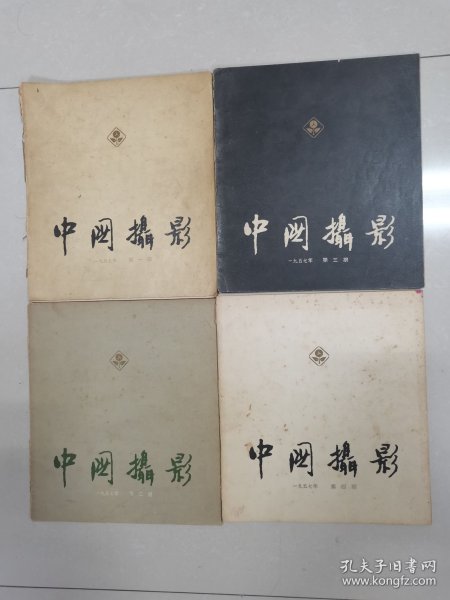 中国攝影
一九五七年 第一期
中国攝影
一九五七年 第三期
中国攝影
一九五七年 第二期
中国攝影
一九五七年 第四期
孔夫子旧书网
www.kongfz.com